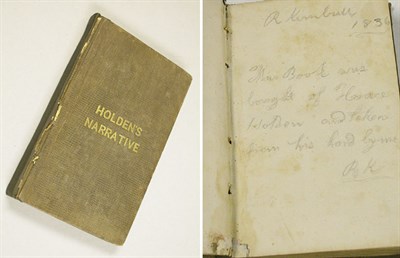 HOLDEN'S
NARRATIVE
R Kimball
183
This Book was
bought of Horace
Holden and taken
from his hand by me
R K